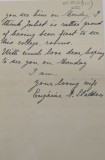 you see him on Monday. I
think Juliet is rather proud
of having been first to see
this college return.
With much love dear, hoping
to see you on Monday
I am
Your loving wife
Eugénie S.